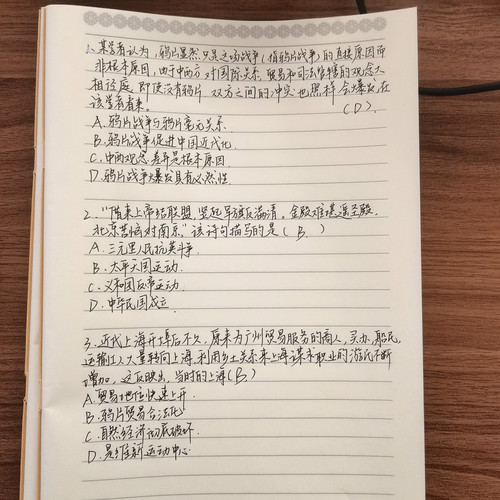 1、某学者认为，鸦片虽然只是这场战争（指鸦片战争）的直接原因而
非根本原因，由于中西方对国际关系、贸易和司法管辖的观念大
相径庭，即使没有鸦片，双方之间的冲突也照样会爆发，在
该学者看来，（D）.
A．鸦片战争与鸦片毫无关系．
B．鸦片战争促进中国近代化．
C．中西观念差异是根本原因．
D．鸦片战争爆发具有必然性．
2．“借来上帝结联盟，竖起军旗反满清。金殿难堪遥圣殿，
北京苦恼对南京．”该诗句描写的是（B．）
A．三元里人民抗英斗争．
B．太平天国运动．
C．义和团反帝运动．
D．中华民国成立．
3．近代上海开埠后不久，原来为广州贸易服务的商人，买办，船民，
运输工人大量转向上海，利用乡土关系来上海谋求职业的游民不断
增加，这反映出，当时的上海（B．）
A．贸易地位快速上升．
B．鸦片贸易合法化．
C．自然经济彻底破坏．
D．是维新运动中心．